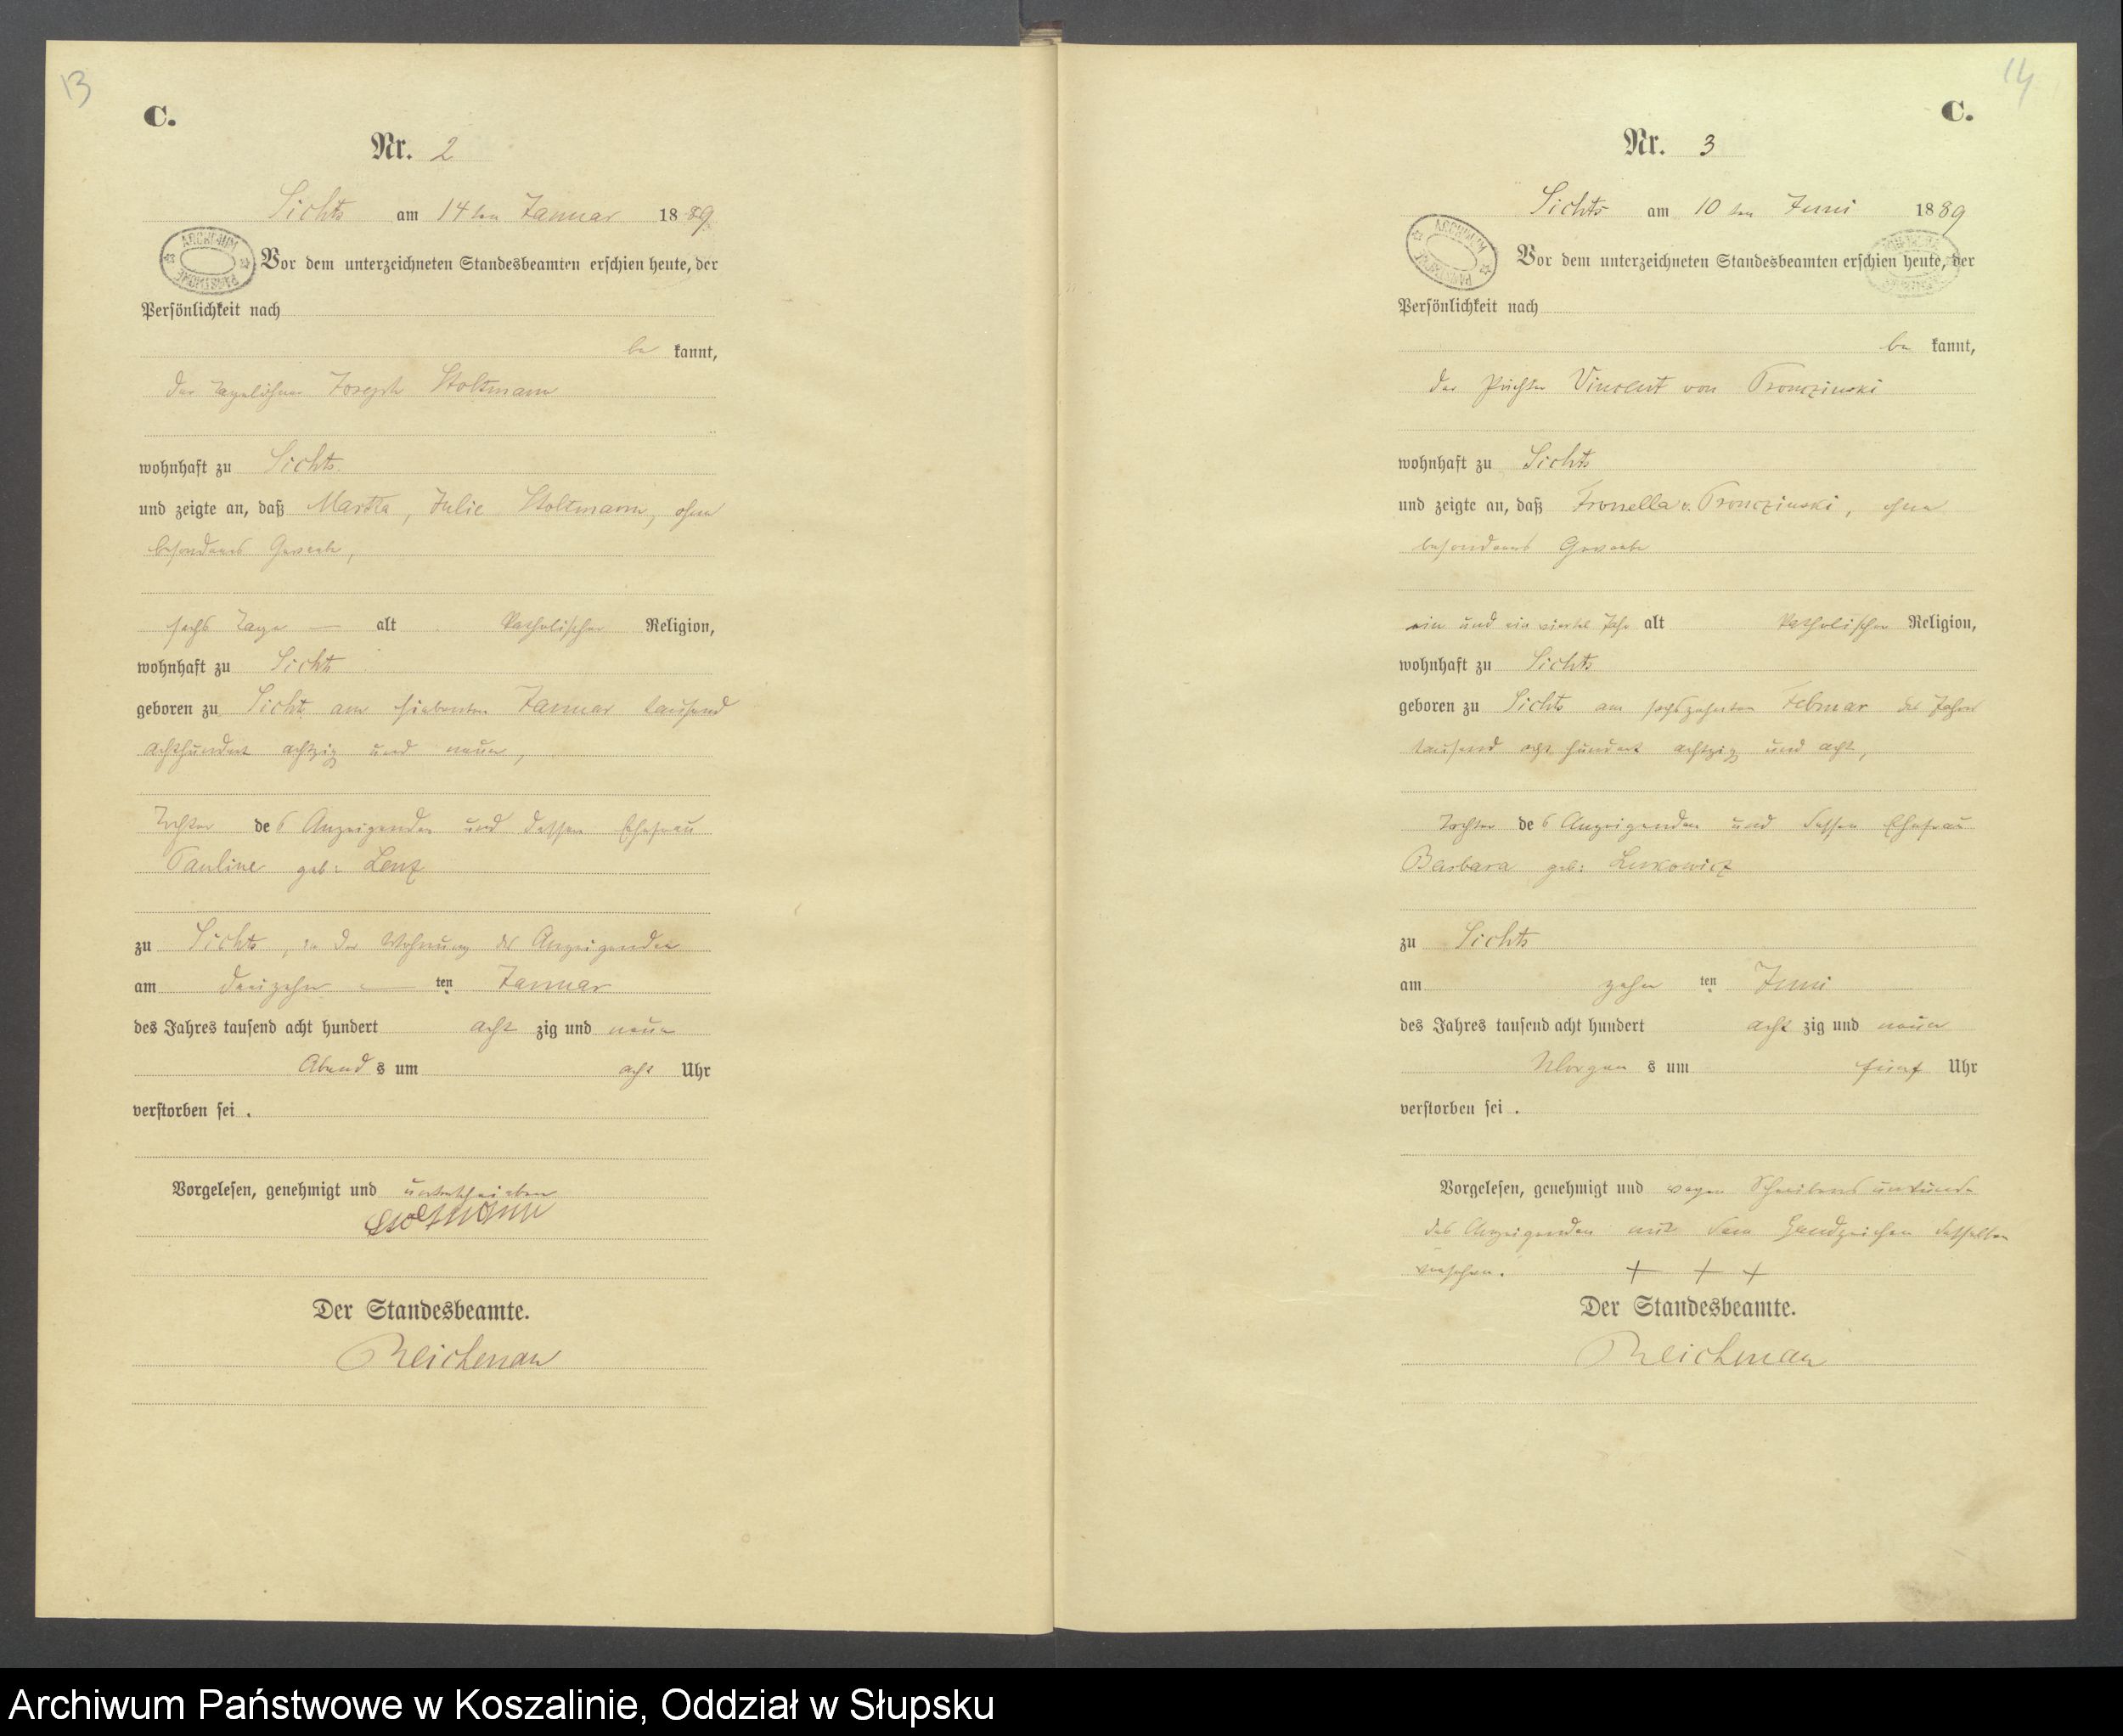 13
C.
Nr. 2
Sichts am 14ten Januar 1889.
ARCHIWUM PAŃSTWOWE
Vor dem unterzeichneten Standesbeamten erschien heute, der
Persönlichkeit nach
be kannt,
der Tagelöhner Joseph Stoltmann
wohnhaft zu Sichts.
und zeigte an, daß Martha, Julie Stoltmann, ohne
besonderes Gewerbe,
sechs Tage — alt katholischer Religion,
wohnhaft zu Sichts
geboren zu Sichts am siebenten Januar tausend
achthundert achtzig und neun,
Tochter des Anzeigenden und dessen Ehefrau
Pauline geb: Lenz
zu Sichts, in der Wohnung des Anzeigenden
am dreizehn — ten Januar
des Jahres tausend acht hundert acht zig und neun
Abend s um acht Uhr
verstorben sei .
Vorgelesen, genehmigt und unterschrieben
Stoltmann
Der Standesbeamte.
Reichenau
14
C.
Nr. 3
Sichts am 10ten Juni 1889
ARCHIWUM PAŃSTWOWE
Vor dem unterzeichneten Standesbeamten erschien heute, der
Persönlichkeit nach
be kannt,
der Pächter Vincent von Pronczinski
wohnhaft zu Sichts
und zeigte an, daß v. Pronczinski, ohne
besonderes Gewerbe
ein und ein viertel Jahr alt katholischer Religion,
wohnhaft zu Sichts
geboren zu Sichts am sechszehnten Februar des Jahres
tausend acht hundert achtzig und acht,
Tochter des Anzeigenden und dessen Ehefrau
Barbara geb: Leskowicz
zu Sichts
am zehn ten Juni
des Jahres tausend acht hundert acht zig und neun
Morgen s um fünf Uhr
verstorben sei .
Vorgelesen, genehmigt und wegen Schreibensunkunde
des Anzeigenden mit dem Handzeichen desselben
versehen. + + +
Der Standesbeamte.
Reichenau
Archiwum Państwowe w Koszalinie, Oddział w Słupsku